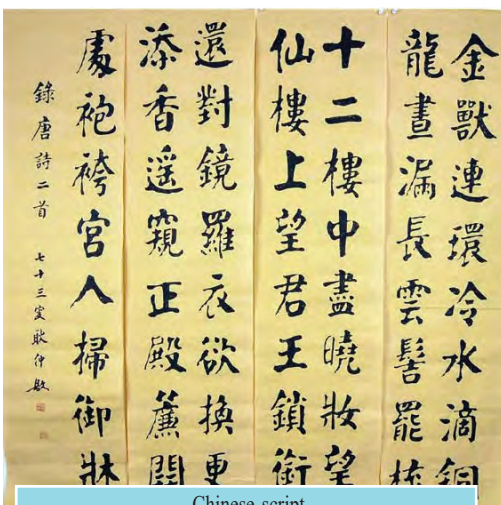 金獸連環冷水滴銅
龍晝漏長雲髻罷梳
十二樓中盡曉妝望
仙樓上望君王鎖銜
還對鏡羅衣欲換更
添香遥窺正殿簾開
處袍袴宮人掃御牀
錄唐詩二首 七十三叟耿仲
Chinese script